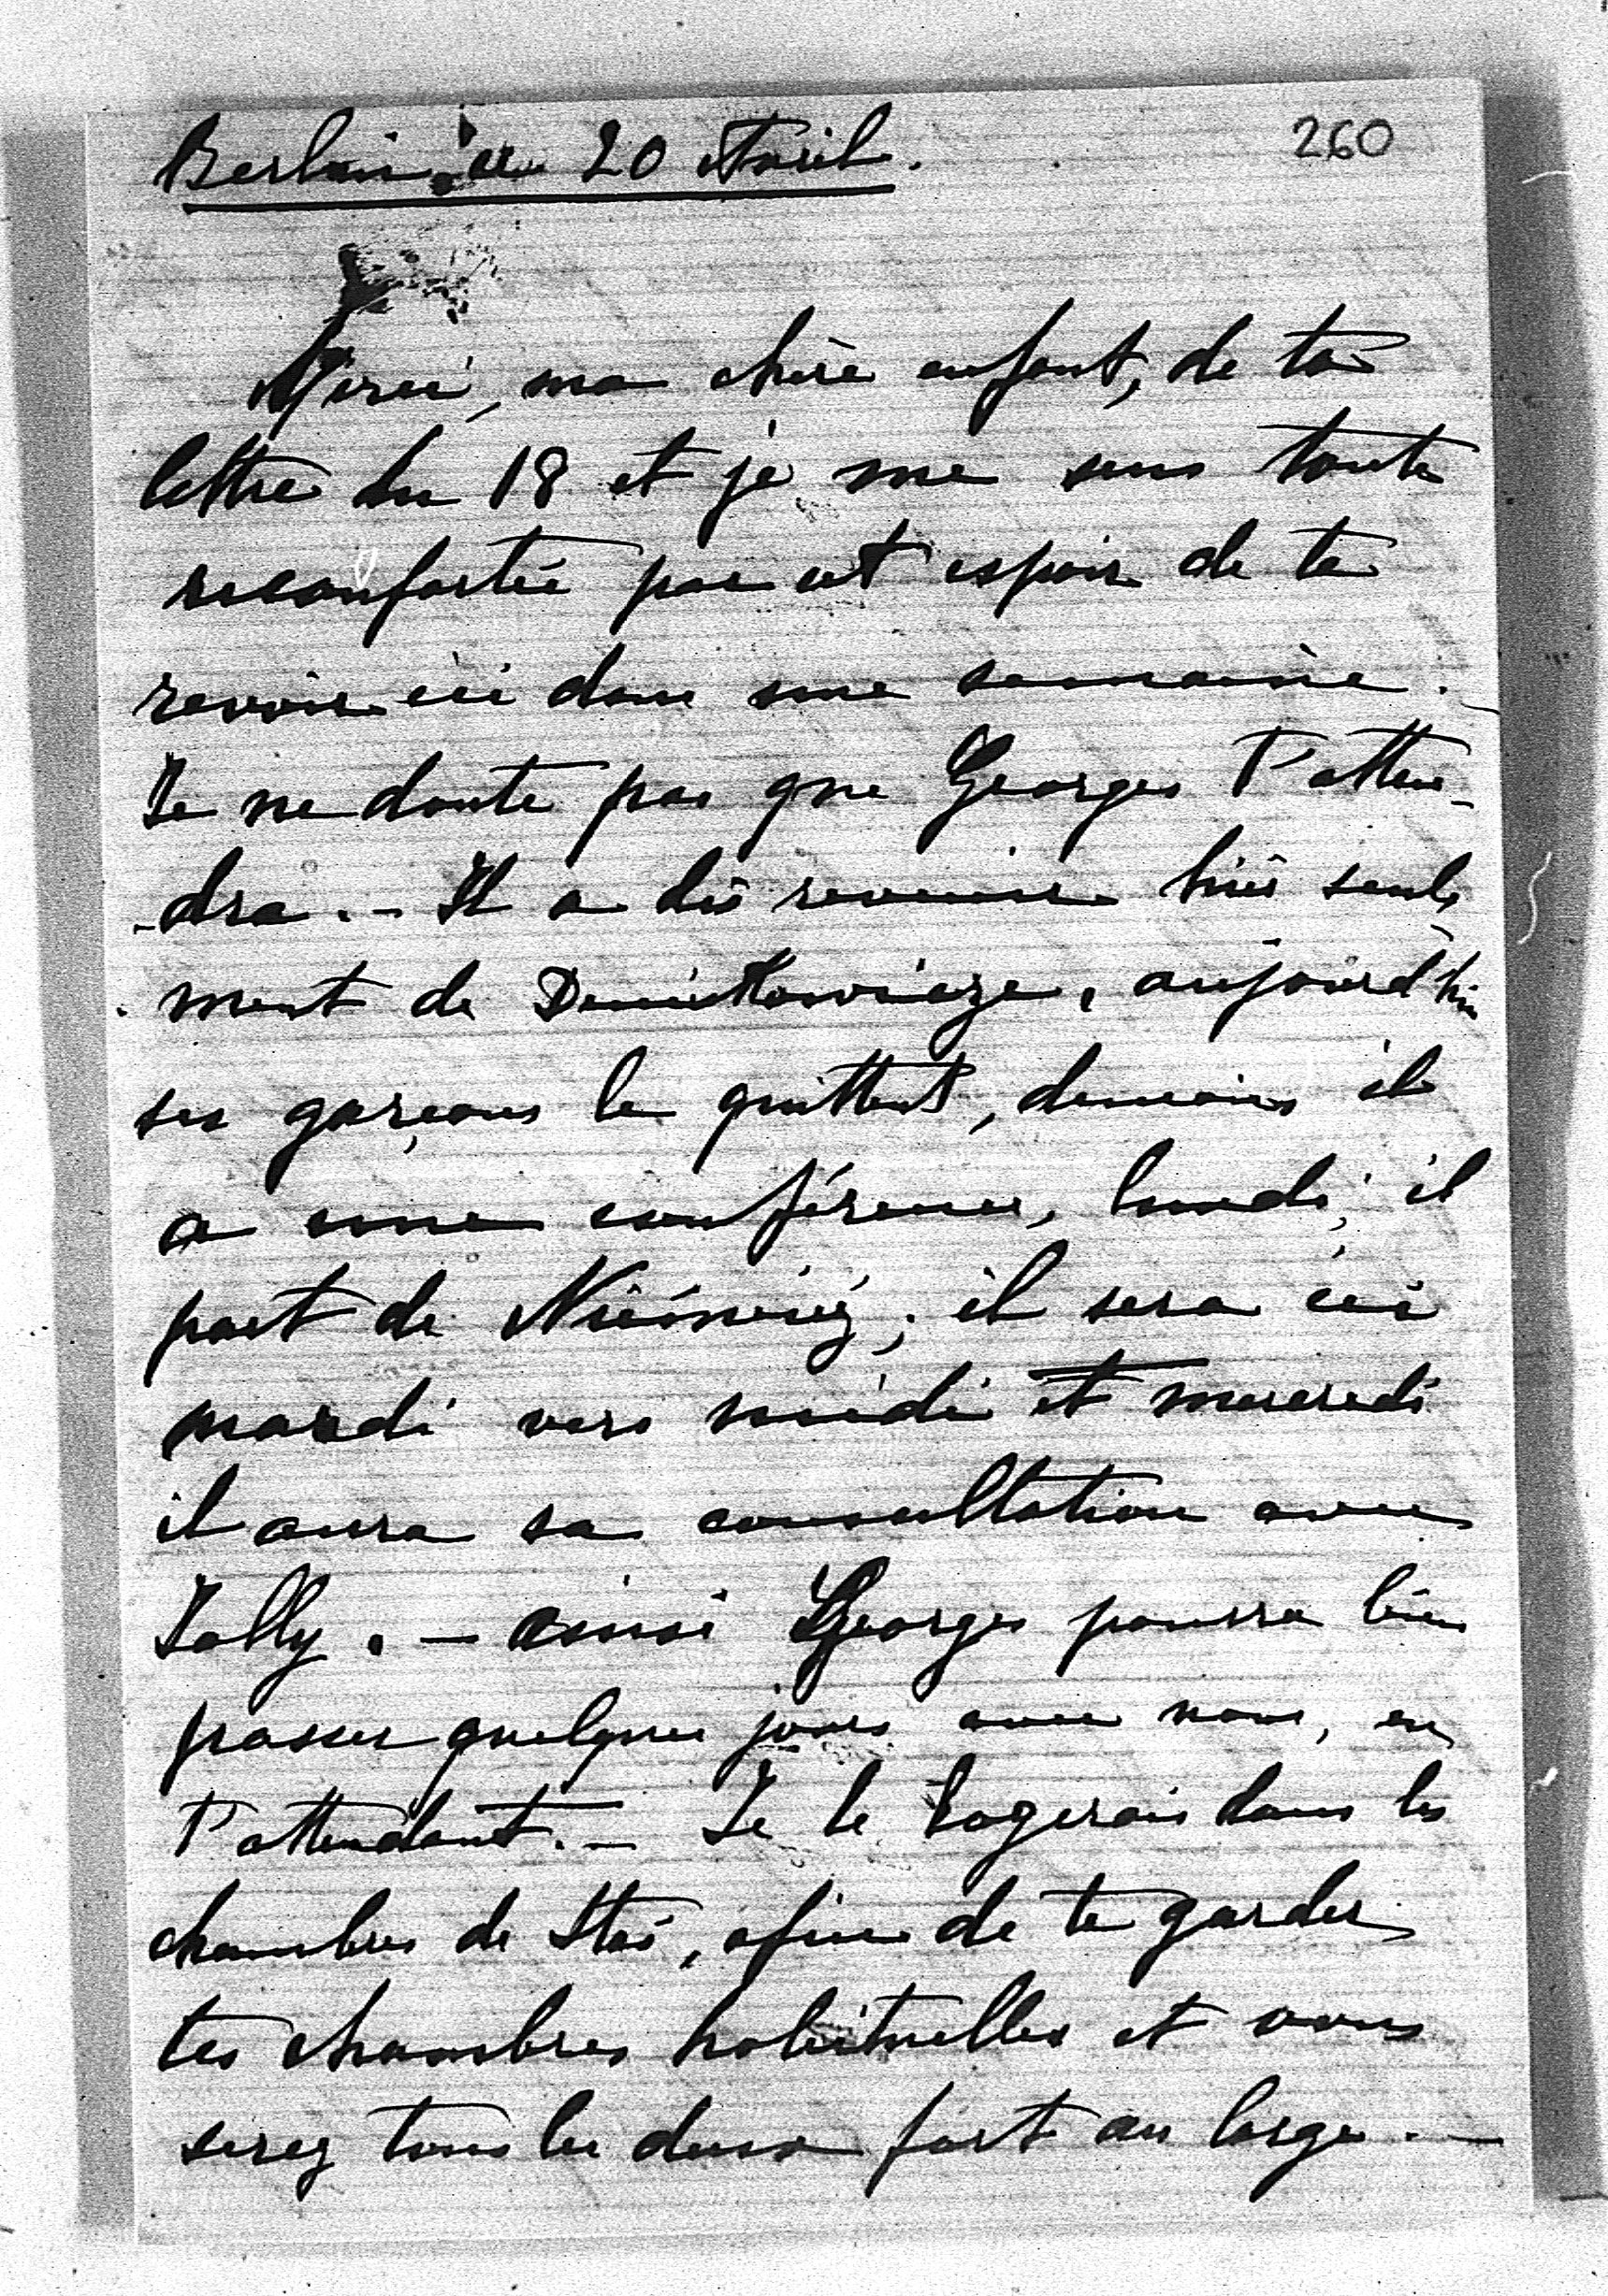 Berlin ce 20 Avril.
260
Merci, ma chère enfant, de ta
lettre du 18 et je me sens toute
reconfortée par cet espoir de te
revoir ici dans une semaine.
Je ne doute pas que Georges t'atten-
-dra. - Il a dû revenir hier seule
ment de , aujourd'hui
ses garçons le quittent, demain il
a une conférence, lundi, il
part de ; il sera ici
mardi vers midi et mercredi
il aura sa consultation avec
Jolly. - ainsi Georges pourra bien
passer quelques jours avec nous, en
t'attendant. - Je le logerais dans les
chambres de Stas, afin de te garder
tes chambres habituelles et vous
serez tous les deux fort au large. -